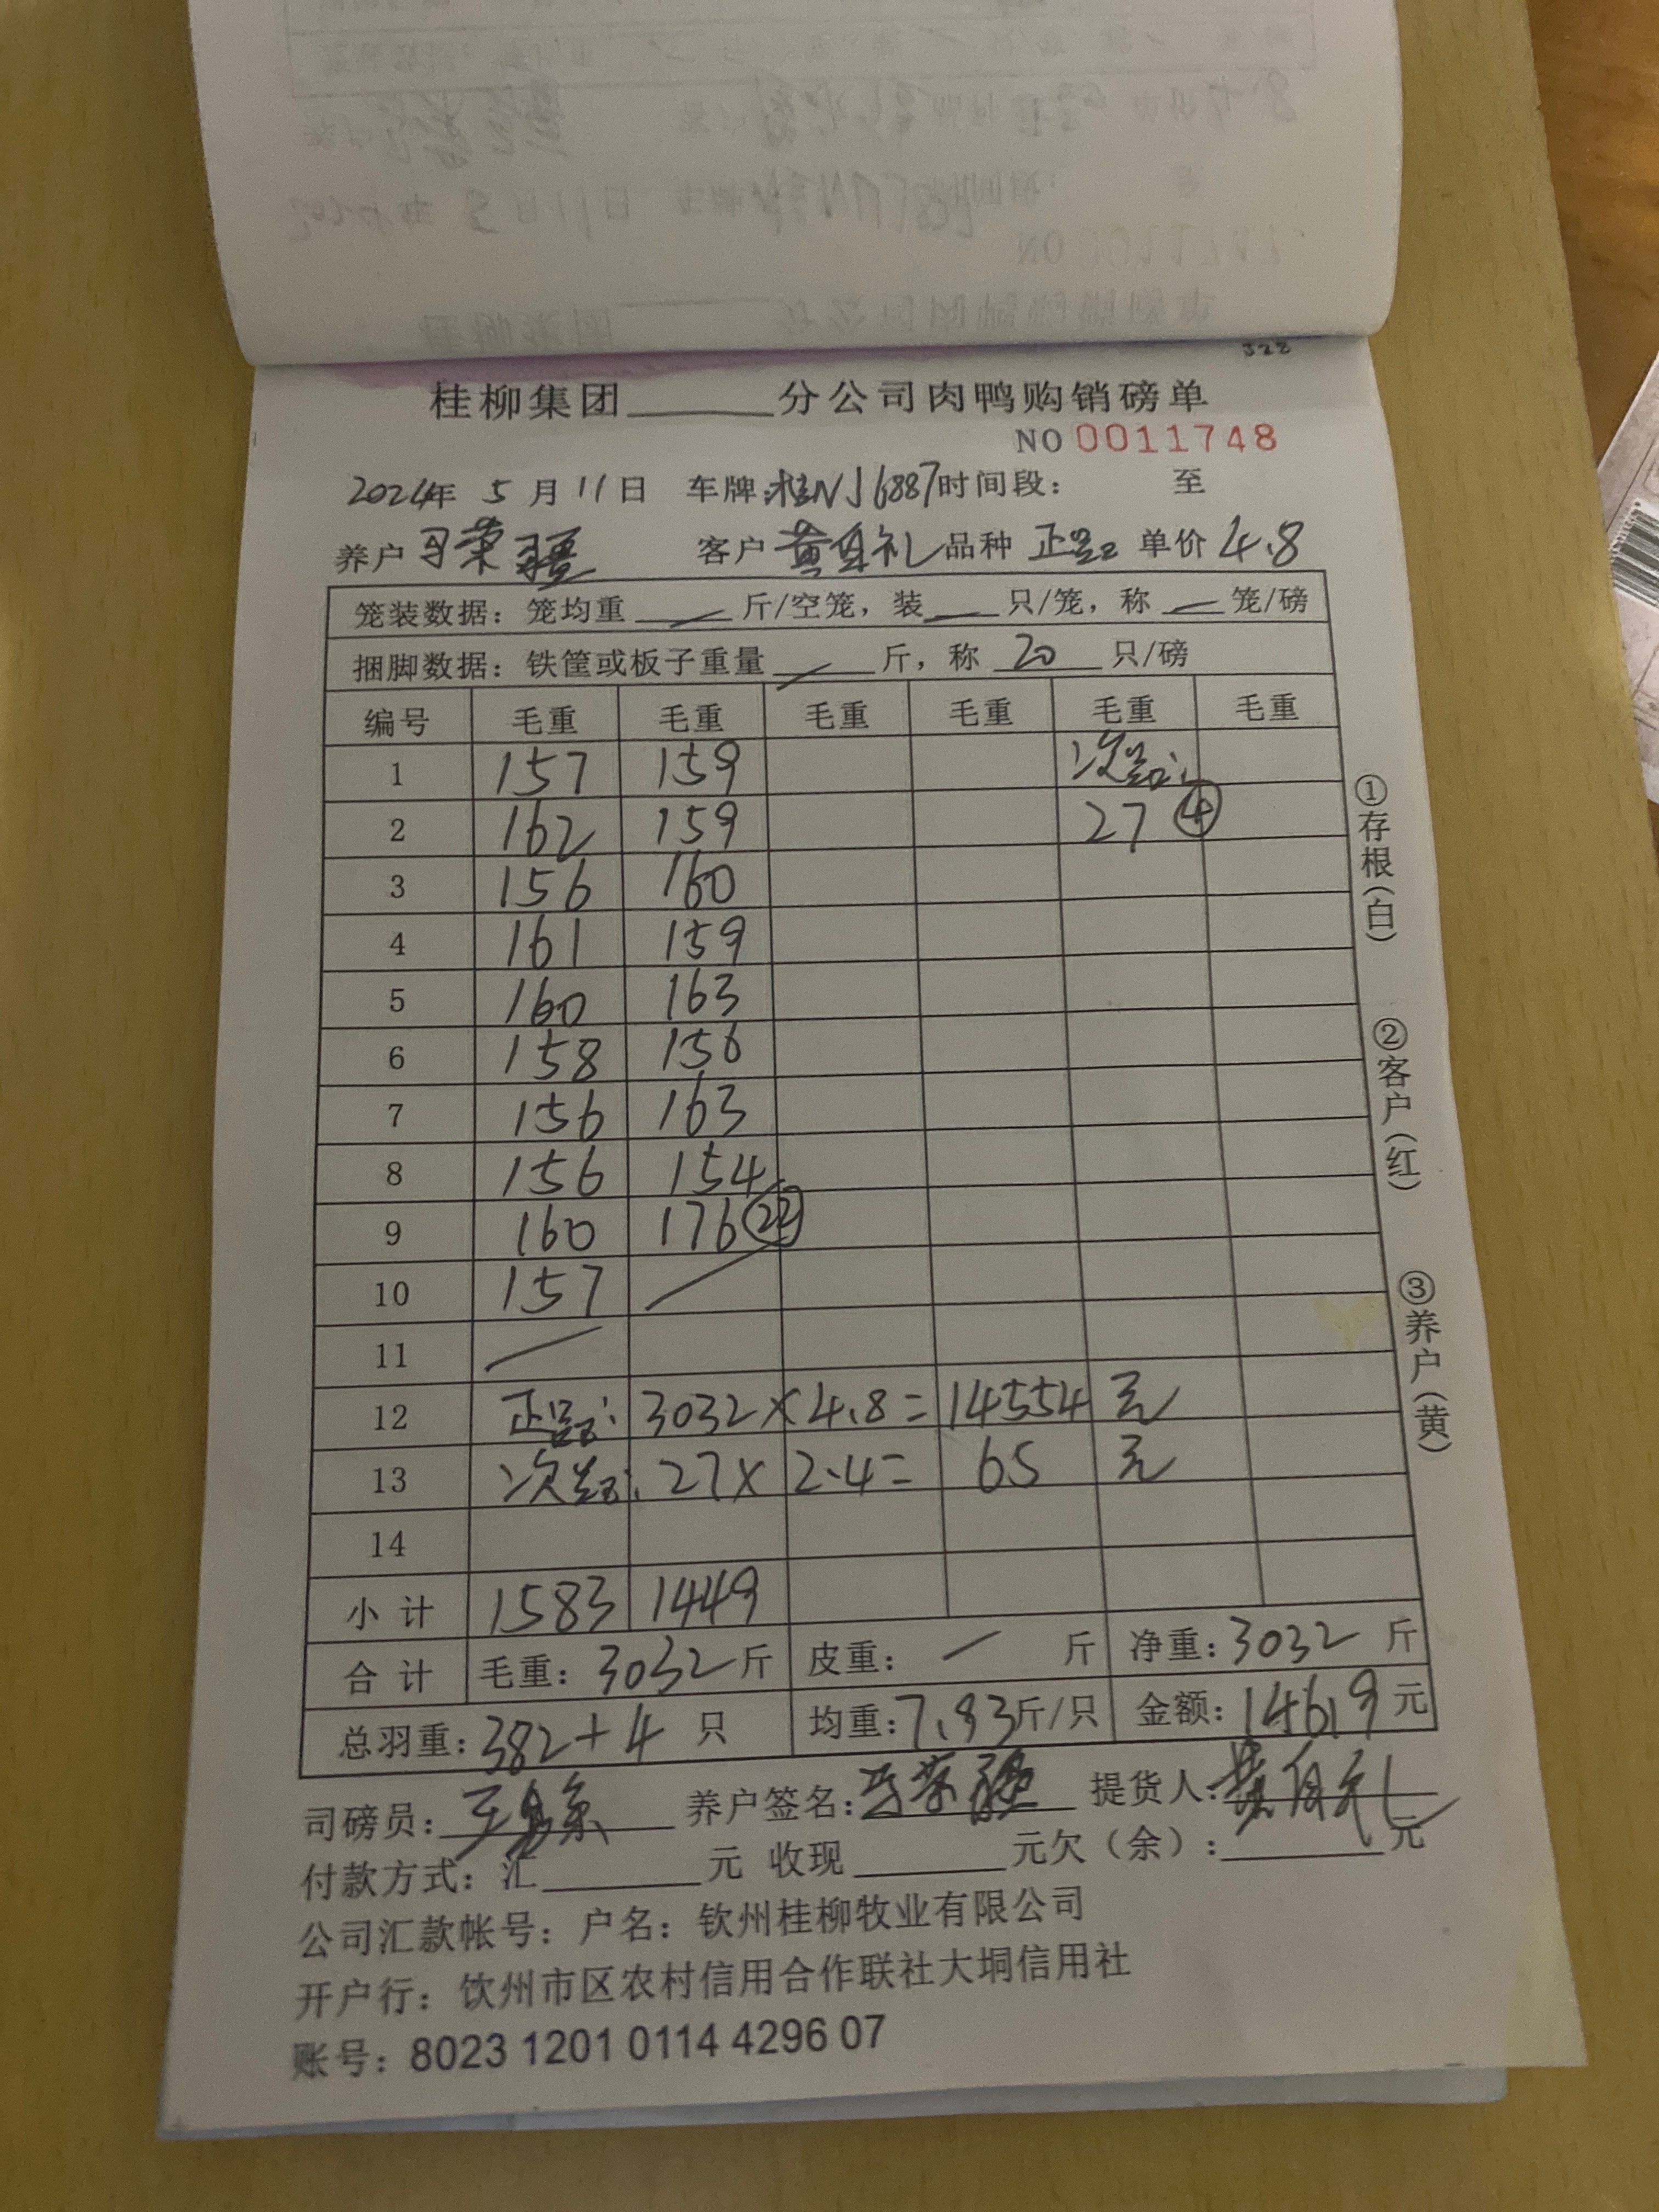 328
桂柳集团______分公司肉鸭购销磅单
NO 0011748
2024年 5 月 11 日 车牌:桂NJ6887 时间段: 至
养户 荣疆 客户 黄自礼 品种 正品 单价 4.8
笼装数据: 笼均重 — 斤/空笼, 装 — 只/笼, 称 — 笼/磅
捆脚数据: 铁筐或板子重量 — 斤, 称 20 只/磅
编号 毛重 毛重 毛重 毛重 毛重 毛重
1 157 159 次品:
2 162 159 27 ④
3 156 160
4 161 159
5 160 163
6 158 156
7 156 163
8 156 154
9 160 176 ㉒
10 157 /
11 /
12 正品: 3032 × 4.8 = 14554 元
13 次品: 27 × 2.4 = 65 元
14
小 计 1583 1449
合 计 毛重: 3032 斤 皮重: — 斤 净重: 3032 斤
总羽重: 382+4 只 均重: 7.93 斤/只 金额: 14619 元
司磅员: 养户签名: 荣疆 提货人: 黄自礼
付款方式: 汇______元 收现______元欠(余):______元
公司汇款帐号: 户名: 钦州桂柳牧业有限公司
开户行: 钦州市区农村信用合作联社大垌信用社
账号: 8023 1201 0114 4296 07
①存根(白)
②客户(红)
③养户(黄)